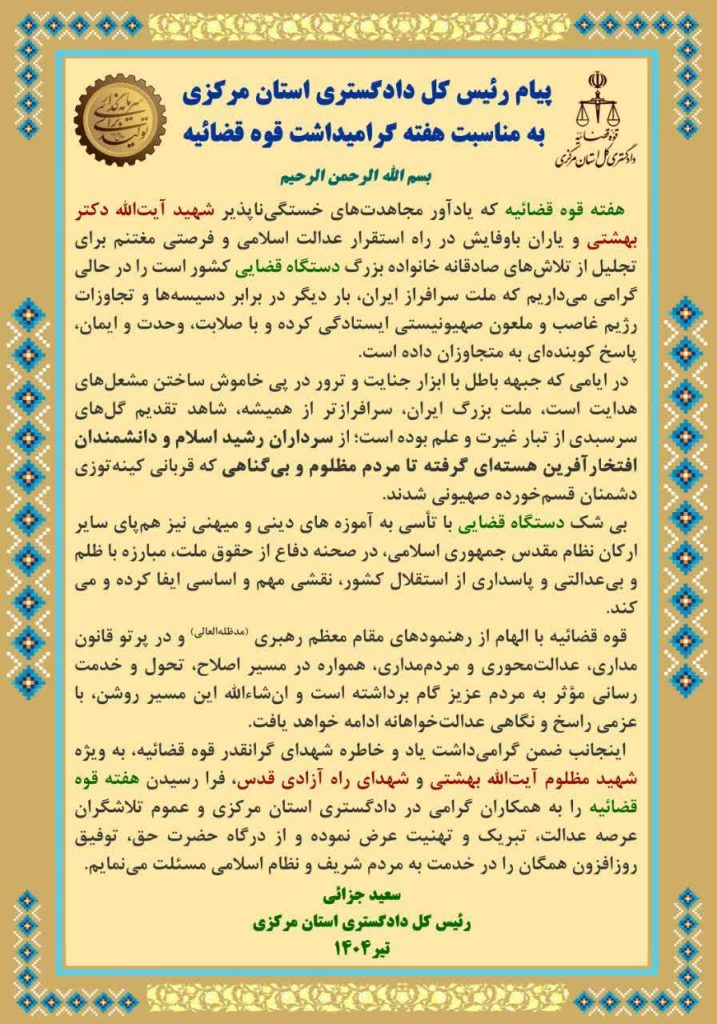 پیام رئیس کل دادگستری استان مرکزی
به مناسبت هفته گرامیداشت قوه قضائیه
قوه قضائیه
دادگستری کل استان مرکزی
سرمایه‌گذاری
برای
تولید
بسم الله الرحمن الرحیم
هفته قوه قضائیه که یادآور مجاهدت‌های خستگی‌ناپذیر شهید آیت‌الله دکتر
بهشتی و یاران باوفایش در راه استقرار عدالت اسلامی و فرصتی مغتنم برای
تجلیل از تلاش‌های صادقانه خانواده بزرگ دستگاه قضایی کشور است را در حالی
گرامی می‌داریم که ملت سرافراز ایران، بار دیگر در برابر دسیسه‌ها و تجاوزات
رژیم غاصب و ملعون صهیونیستی ایستادگی کرده و با صلابت، وحدت و ایمان،
پاسخ کوبنده‌ای به متجاوزان داده است.
در ایامی که جبهه باطل با ابزار جنایت و ترور در پی خاموش ساختن مشعل‌های
هدایت است، ملت بزرگ ایران، سرافرازتر از همیشه، شاهد تقدیم گل‌های
سرسبدی از تبار غیرت و علم بوده است؛ از سرداران رشید اسلام و دانشمندان
افتخارآفرین هسته‌ای گرفته تا مردم مظلوم و بی‌گناهی که قربانی کینه‌توزی
دشمنان قسم‌خورده صهیونی شدند.
بی شک دستگاه قضایی با تأسی به آموزه های دینی و میهنی نیز هم‌پای سایر
ارکان نظام مقدس جمهوری اسلامی، در صحنه دفاع از حقوق ملت، مبارزه با ظلم
و بی‌عدالتی و پاسداری از استقلال کشور، نقشی مهم و اساسی ایفا کرده و می
کند.
قوه قضائیه با الهام از رهنمودهای مقام معظم رهبری (مدظله‌العالی) و در پرتو قانون
مداری، عدالت‌محوری و مردم‌مداری، همواره در مسیر اصلاح، تحول و خدمت
رسانی مؤثر به مردم عزیز گام برداشته است و ان‌شاءالله این مسیر روشن، با
عزمی راسخ و نگاهی عدالت‌خواهانه ادامه خواهد یافت.
اینجانب ضمن گرامی‌داشت یاد و خاطره شهدای گرانقدر قوه قضائیه، به ویژه
شهید مظلوم آیت‌الله بهشتی و شهدای راه آزادی قدس، فرا رسیدن هفته قوه
قضائیه را به همکاران گرامی در دادگستری استان مرکزی و عموم تلاشگران
عرصه عدالت، تبریک و تهنیت عرض نموده و از درگاه حضرت حق، توفیق
روزافزون همگان را در خدمت به مردم شریف و نظام اسلامی مسئلت می‌نمایم.
سعید جزائی
رئیس کل دادگستری استان مرکزی
تیر۱۴۰۴